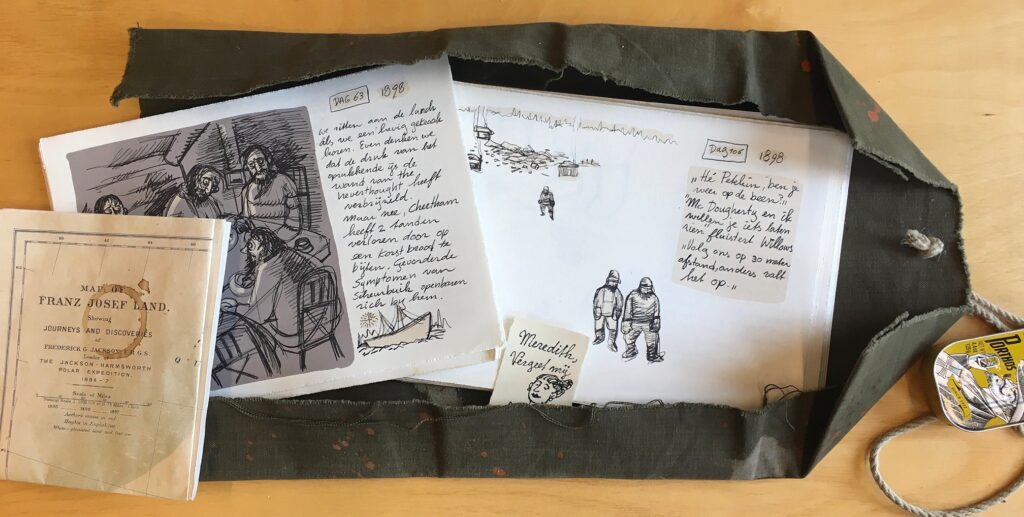 MAP OF
FRANZ JOSEF LAND.
Shewing
JOURNEYS AND DISCOVERIES
of
FREDERICK G. JACKSON, F.R.G.S.
Leader of
THE JACKSON-HARMSWORTH
POLAR EXPEDITION.
1894-7
Scale of Miles
DAG 63 1898
we zitten aan de lunch
als we een hevig gekraak
horen. Even denken we
dat de druk van het
opruikende ijs de
wand van the
Neverthought heeft
verbrijzeld.
Maar nee, Cheetham
heeft 2 tanden
verloren door op
een korst brood te
bijten. Gevorderde
symptomen van
scheurbuik openbaren
zich bij hem.
Dag 106 1898
"Hé Pekelin, ben je
weer op de been?"
"Mc Dougherty en ik
willen je iets laten
zien" fluistert Willows
"Volg ons op 30 meter
afstand, anders valt
het op."
Meredith,
Vergeef mij
PORTHOS